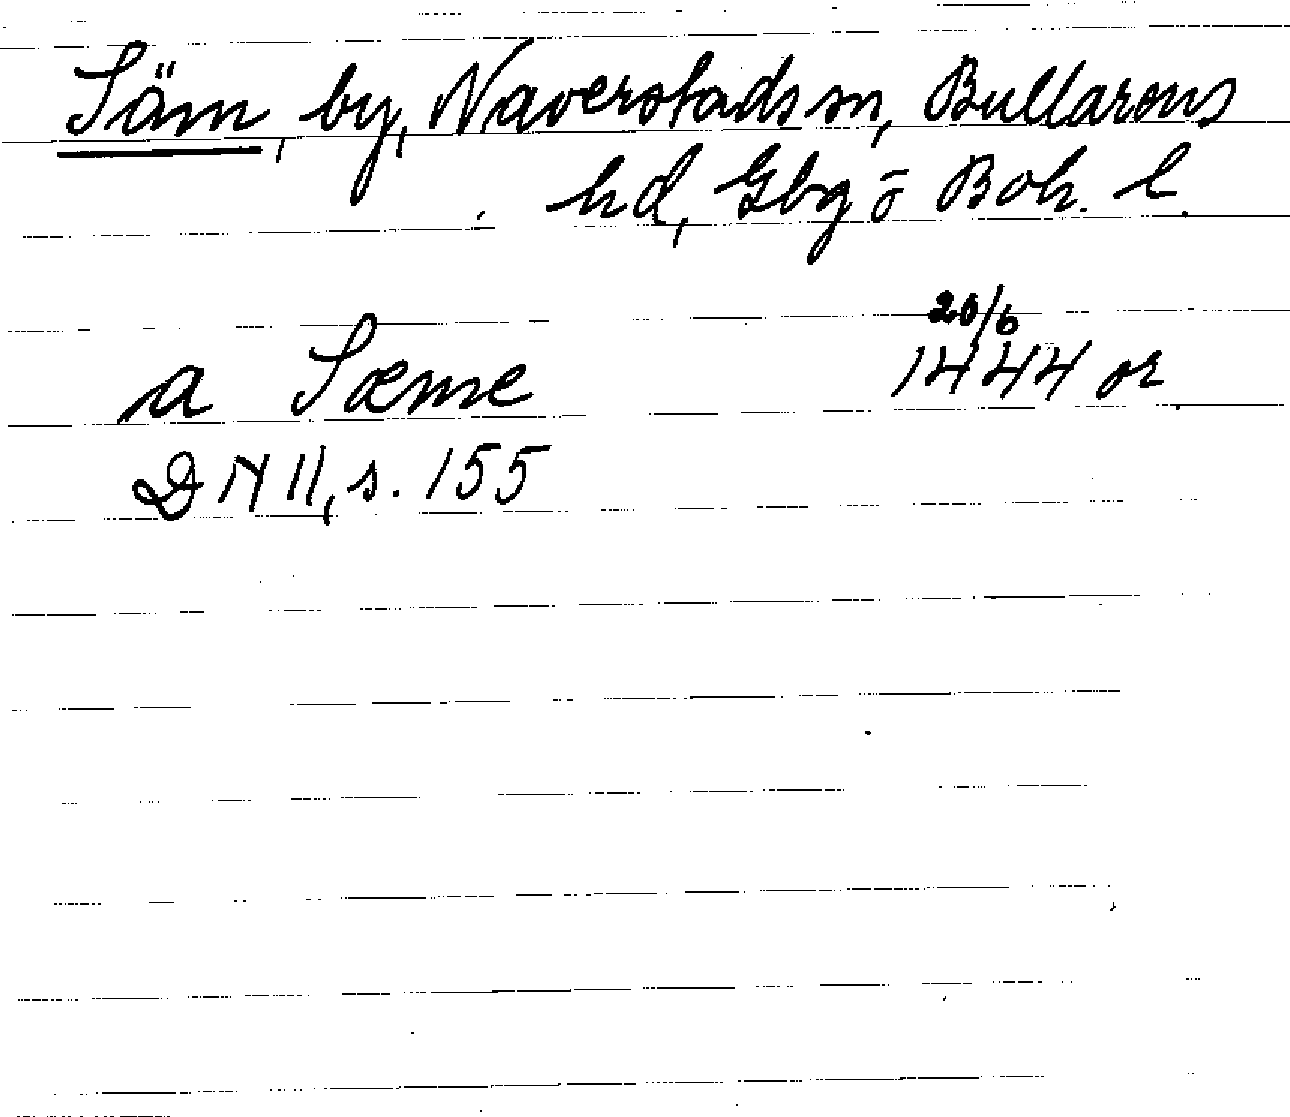 Säm, by, Naverstads sn, Bullarens
hd, Gbg o Boh. l.
20/6
a Sæme 1444 or
DN II, s. 155